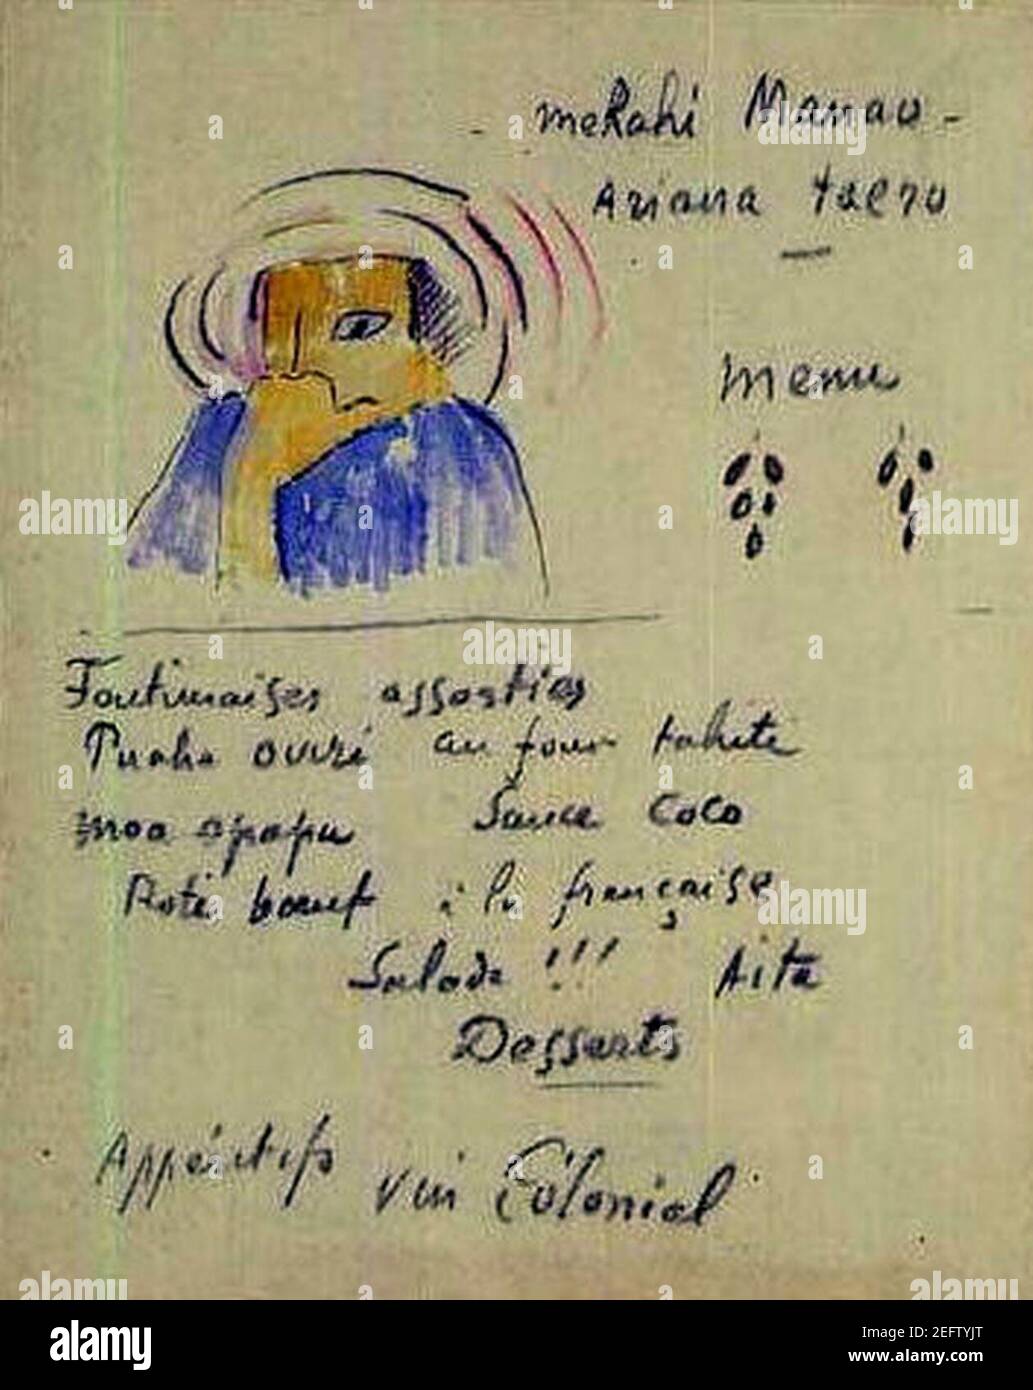 - meRahi Manao -
Ariana taero
menu
assorties
Puaha ouvri au four tahiti
moa opapu Sauce Coco
Roti boeuf à la française
Salade !!! Aita
Desserts
Appéritifs vin Colonial
alamy
Image ID: 2EFTYJT
www.alamy.com